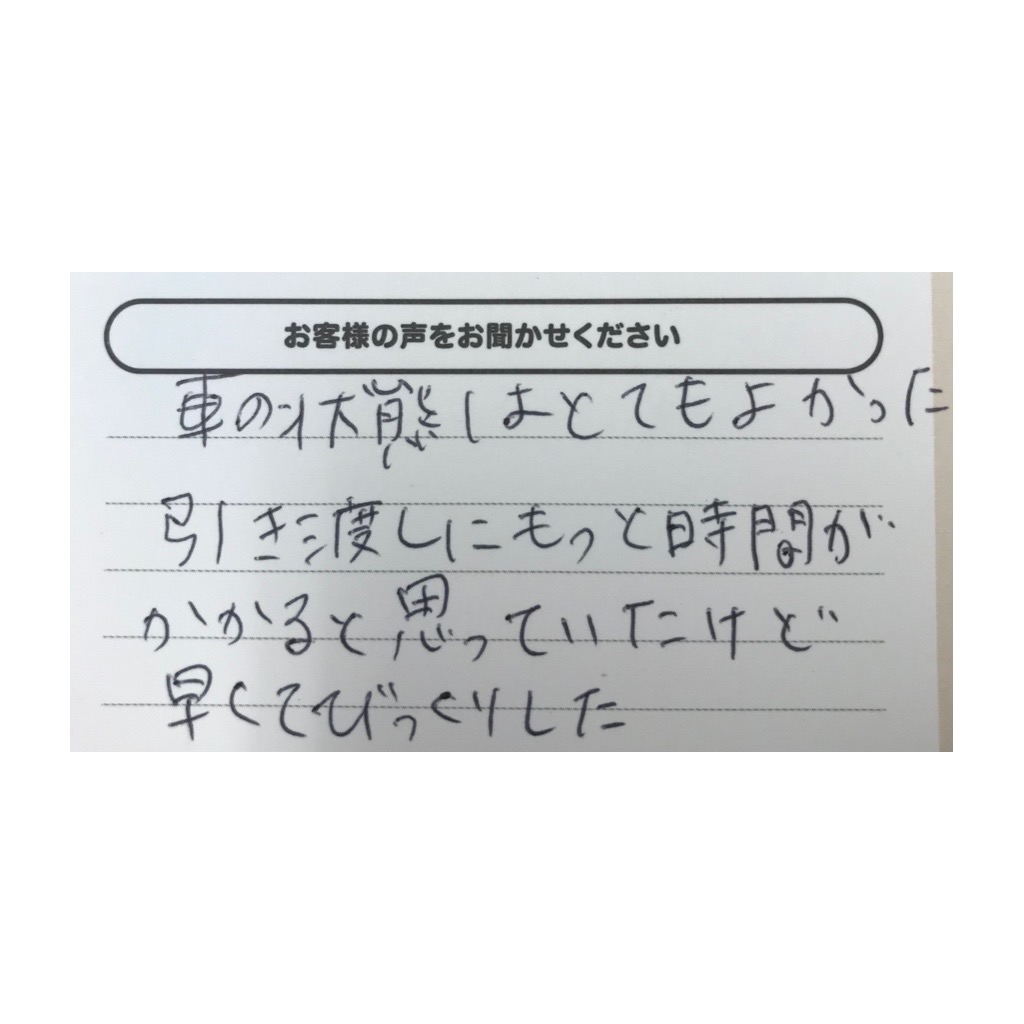 お客様の声をお聞かせください
車の状態はとてもよかった
引き渡しにもっと時間が
かかると思っていたけど
早くてびっくりした